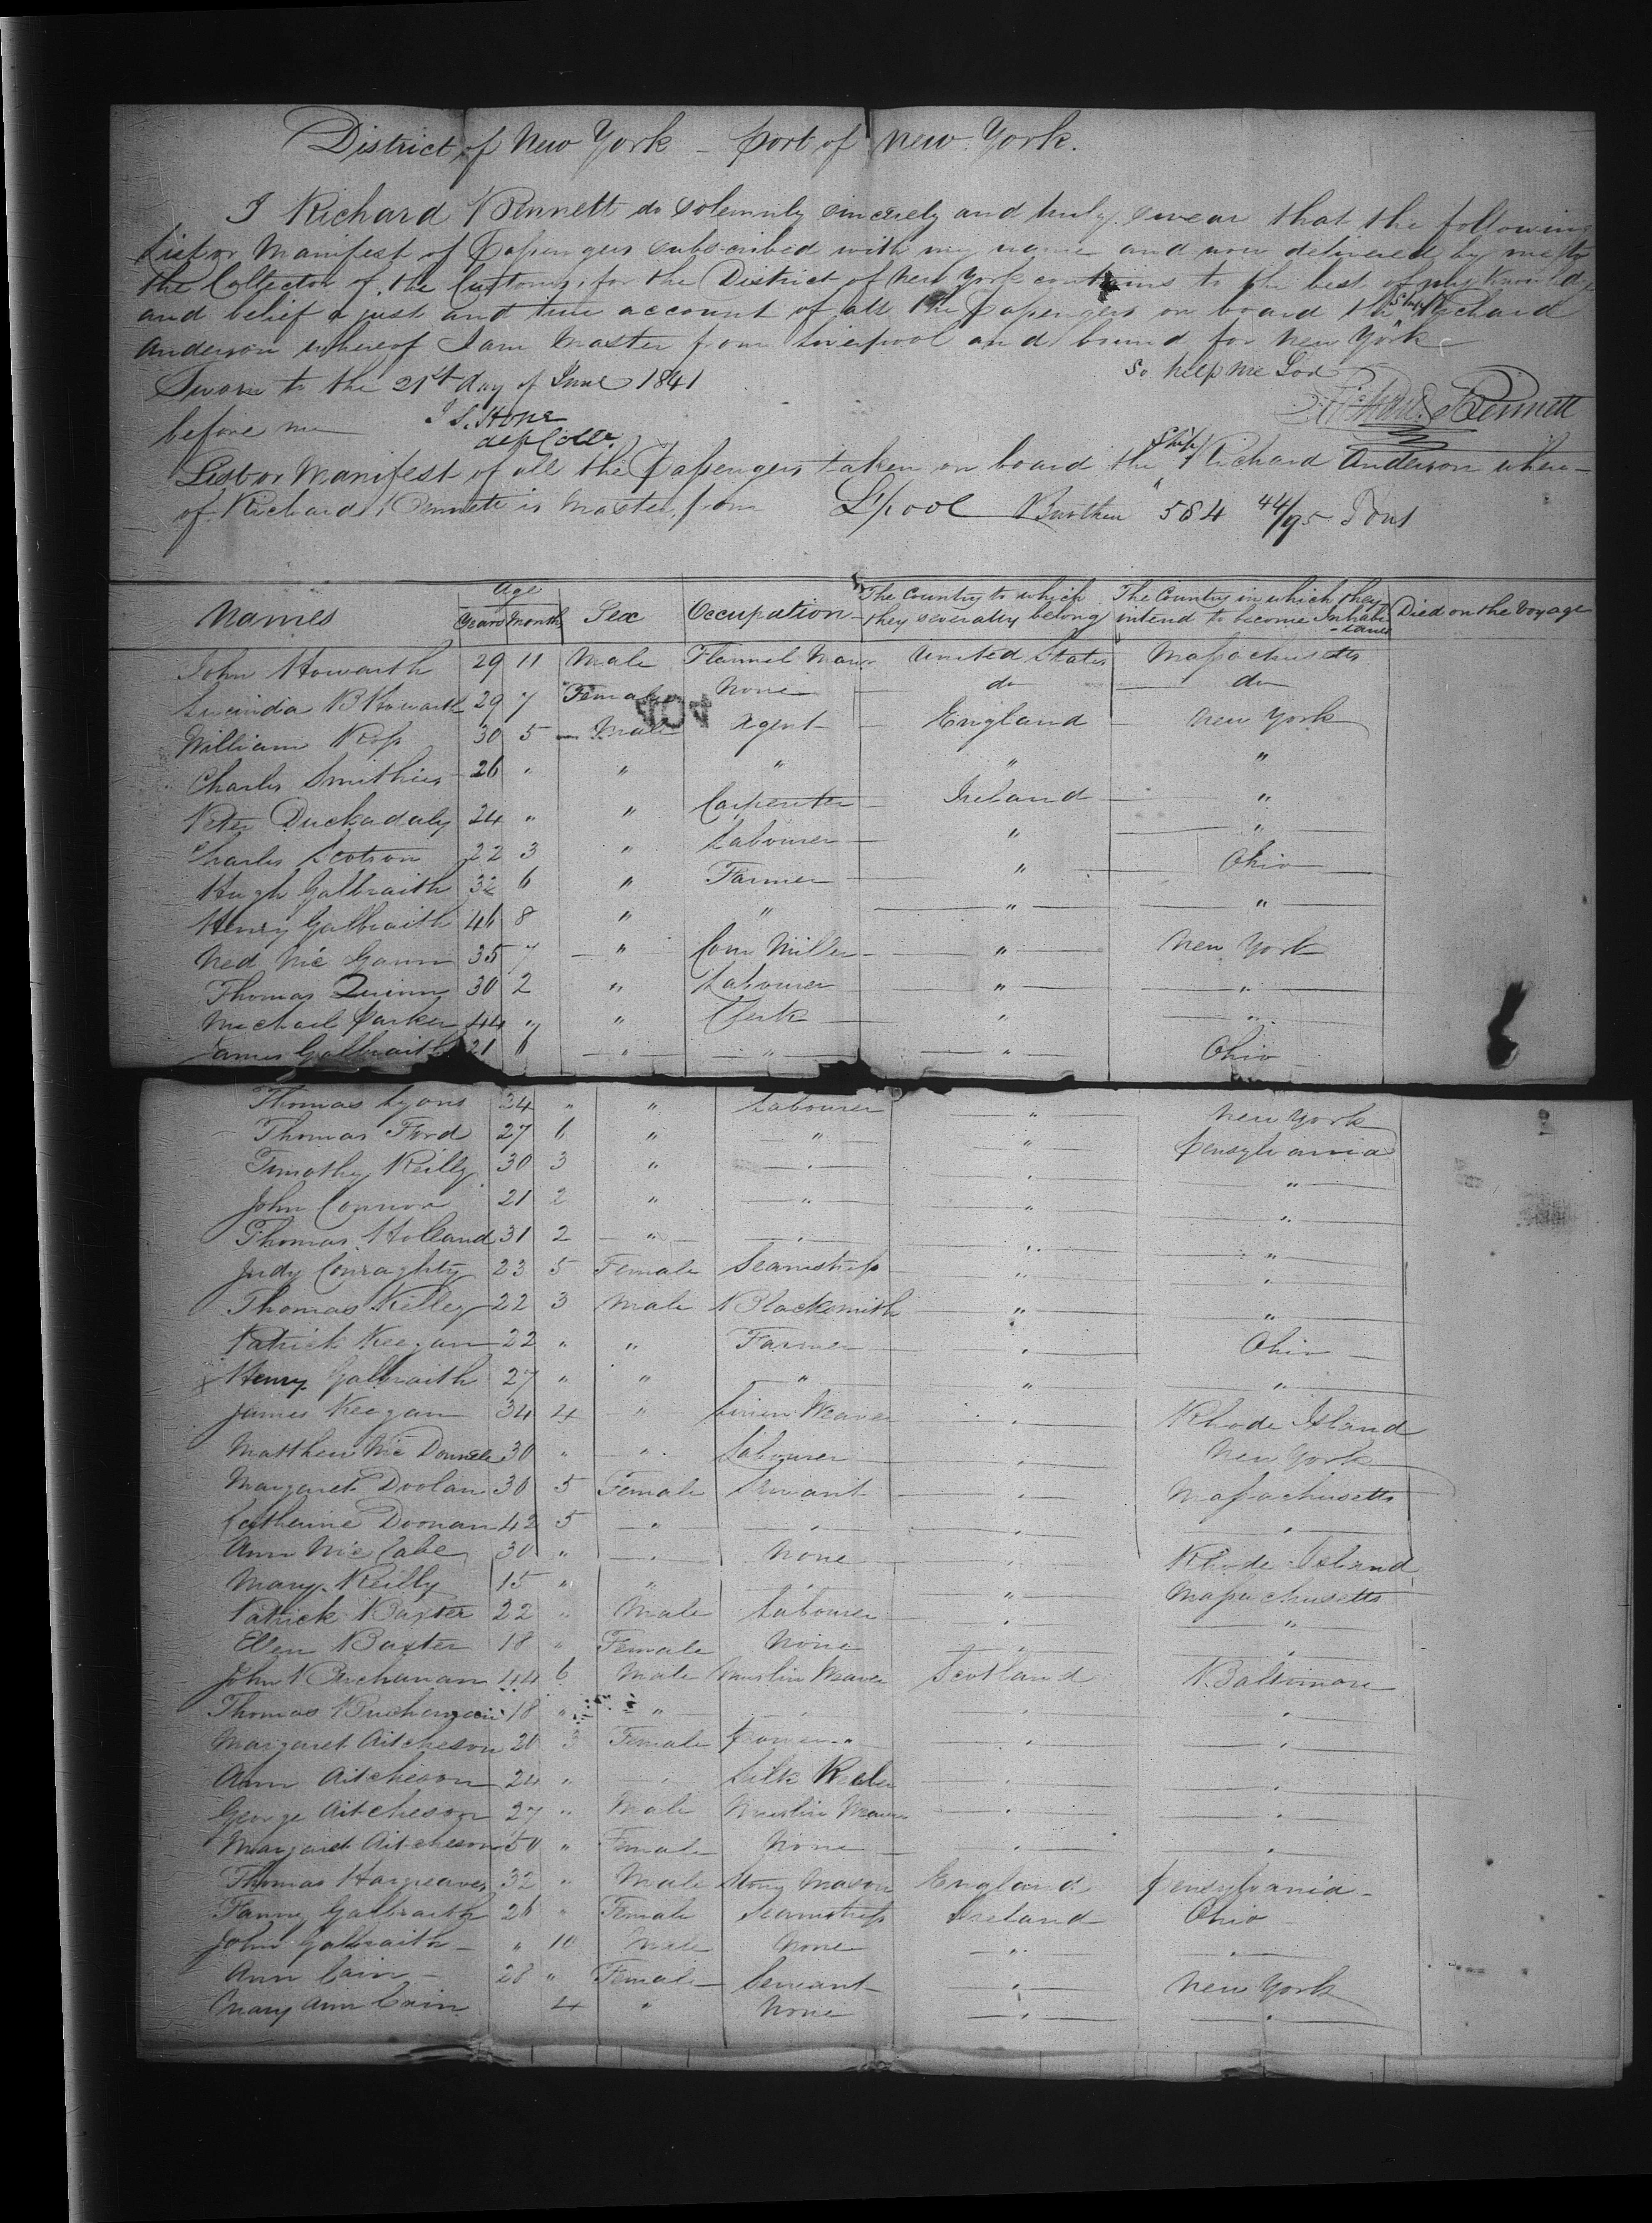 District of New York - port of New York.
I Richard Bennett do solemnly sincerely and truly swear that the following
List or Manifest of Passengers subscribed with my name and now delivered by me to
the Collector of the Customs for the District of New York contains to the best of my knowledge
and belief a just and true account of all the passengers on board the Ship Richard
Anderson whereof I am Master from Liverpool and bound for New York
So help me God
Sworn to the 21st day of June 1841
Richard Bennett
before me
dep Coll.
List or Manifest of all the Passengers taken on board the Ship Richard Anderson where-
of Richard Bennett is Master, from Lpool Burthen 564 44/95 Tons
Names Age Years Months Sex Occupation The Country to which they severally belong The Country in which they intend to become Inhabitants Died on the Voyage
John Howarth 29 11 Male Flannel United States Massachusetts
Lucinda B Howarth 29 7 Female None do do
404
William Ross 30 5 Male Agent England New York
Charles Smithies 26 " " " " "
Peter Duckadaly 24 " " Carpenter Ireland "
Charles Scotson 22 3 " Labourer " "
Hugh Galbraith 32 6 " Farmer " Ohio
Henry Galbraith 46 8 " " " "
Ned Mc Gann 35 7 " Corn Miller " New York
Thomas Quinn 30 2 " Labourer " "
Michael Parker 44 " " Clerk " "
James Galbraith 21 6 " " " Ohio
Thomas Lyons 24 " " Labourer " New York
Thomas Ford 27 6 " " " Pensylvania
Timothy Reilly 30 3 " " " "
John Connor 21 2 " " " "
Thomas Holland 31 2 " " " "
Judy Conraghty 23 5 Female Seamstress " "
Thomas Kelley 22 3 Male Blacksmith " "
Patrick Keegan 22 " " Farmer " Ohio
Henry Galbraith 27 " " " " "
James Keegan 34 4 " Linen Weaver " Rhode Island
Matthew Mc 30 " " Labourer " New York
Margaret Doolan 30 5 Female Servant " Massachusetts
Catherine Doonan 42 5 " " " "
Ann Mc Cabe 30 " " None " Rhode Island
Mary Reilly 15 " " " " Massachusetts
Patrick Baxter 22 " Male Labourer " "
Ellen Baxter 18 " Female None " "
John Buchanan 44 6 Male Muslin Weaver Scotland Baltimore
Thomas Buchanan 18 " " " " "
Margaret Aitcheson 20 3 Female " " "
Ann Aitcheson 24 " " Silk " "
George Aitcheson 27 " Male Muslin Weaver " "
Margaret Aitcheson 50 " Female None " "
Thomas Hargreaves 32 " Male Stone Mason England Pensylvania
Fanny Galbraith 26 " Female Seamstress Ireland Ohio
John Galbraith " 10 Male None " "
Ann Cain 28 " Female Servant " New York
Mary Ann Cain 4 " None " "